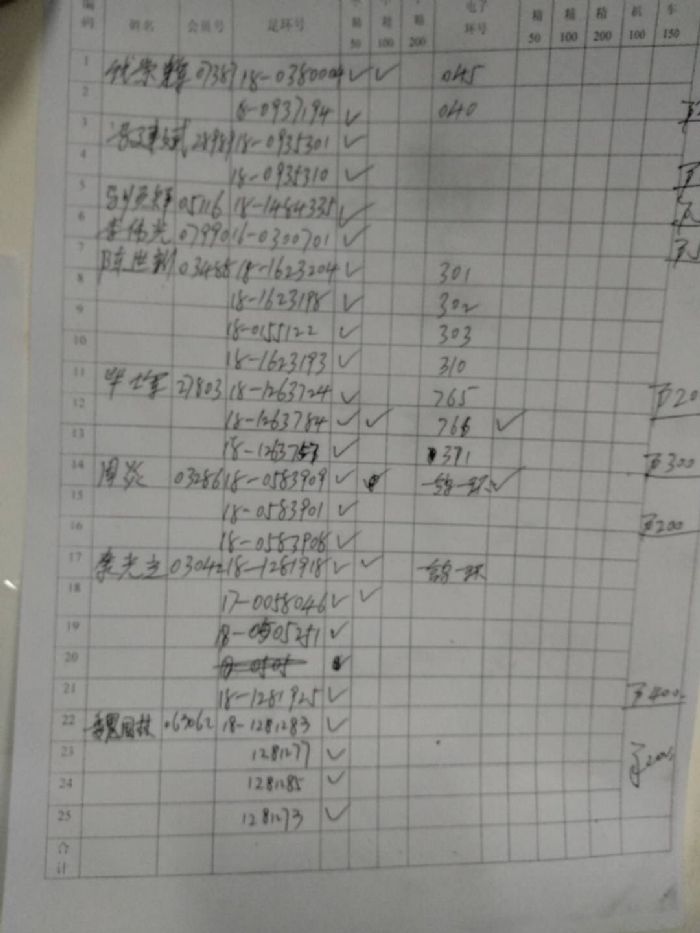 编码 姓名 会员号 足环号 精50 精100 精200 电子环号 精50 精100 精200 机100 车150
1 07387 18-0380004 ✓ ✓ 045
2 18-0937194 ✓ 040
3 28989 18-0935301 ✓
4 18-0935310 ✓
5 05116 18-1484335 ✓
6 李伟光 07990 16-0300701 ✓
7 陈世新 03488 18-1623204 ✓ 301
8 18-1623198 ✓ 302
9 18-0155122 ✓ 303
10 18-1623193 ✓ 310
11 毕士军 27803 18-1263724 ✓ 765
12 18-1263784 ✓ ✓ 766 ✓
13 18-1263753 ✓ 371
14 周炎 03286 18-0583909 ✓ ✓
300
15 18-0583901 ✓
16 18-0583908 ✓
200
17 李光立 03042 18-1281918 ✓ ✓
18 17-0058046 ✓ ✓
19 18-0505251 ✓
20
21 18-1281925 ✓
400
22 魏国林 063062 18-1281283 ✓
23 1281277 ✓
24 1281285 ✓
25 1281273 ✓
合计